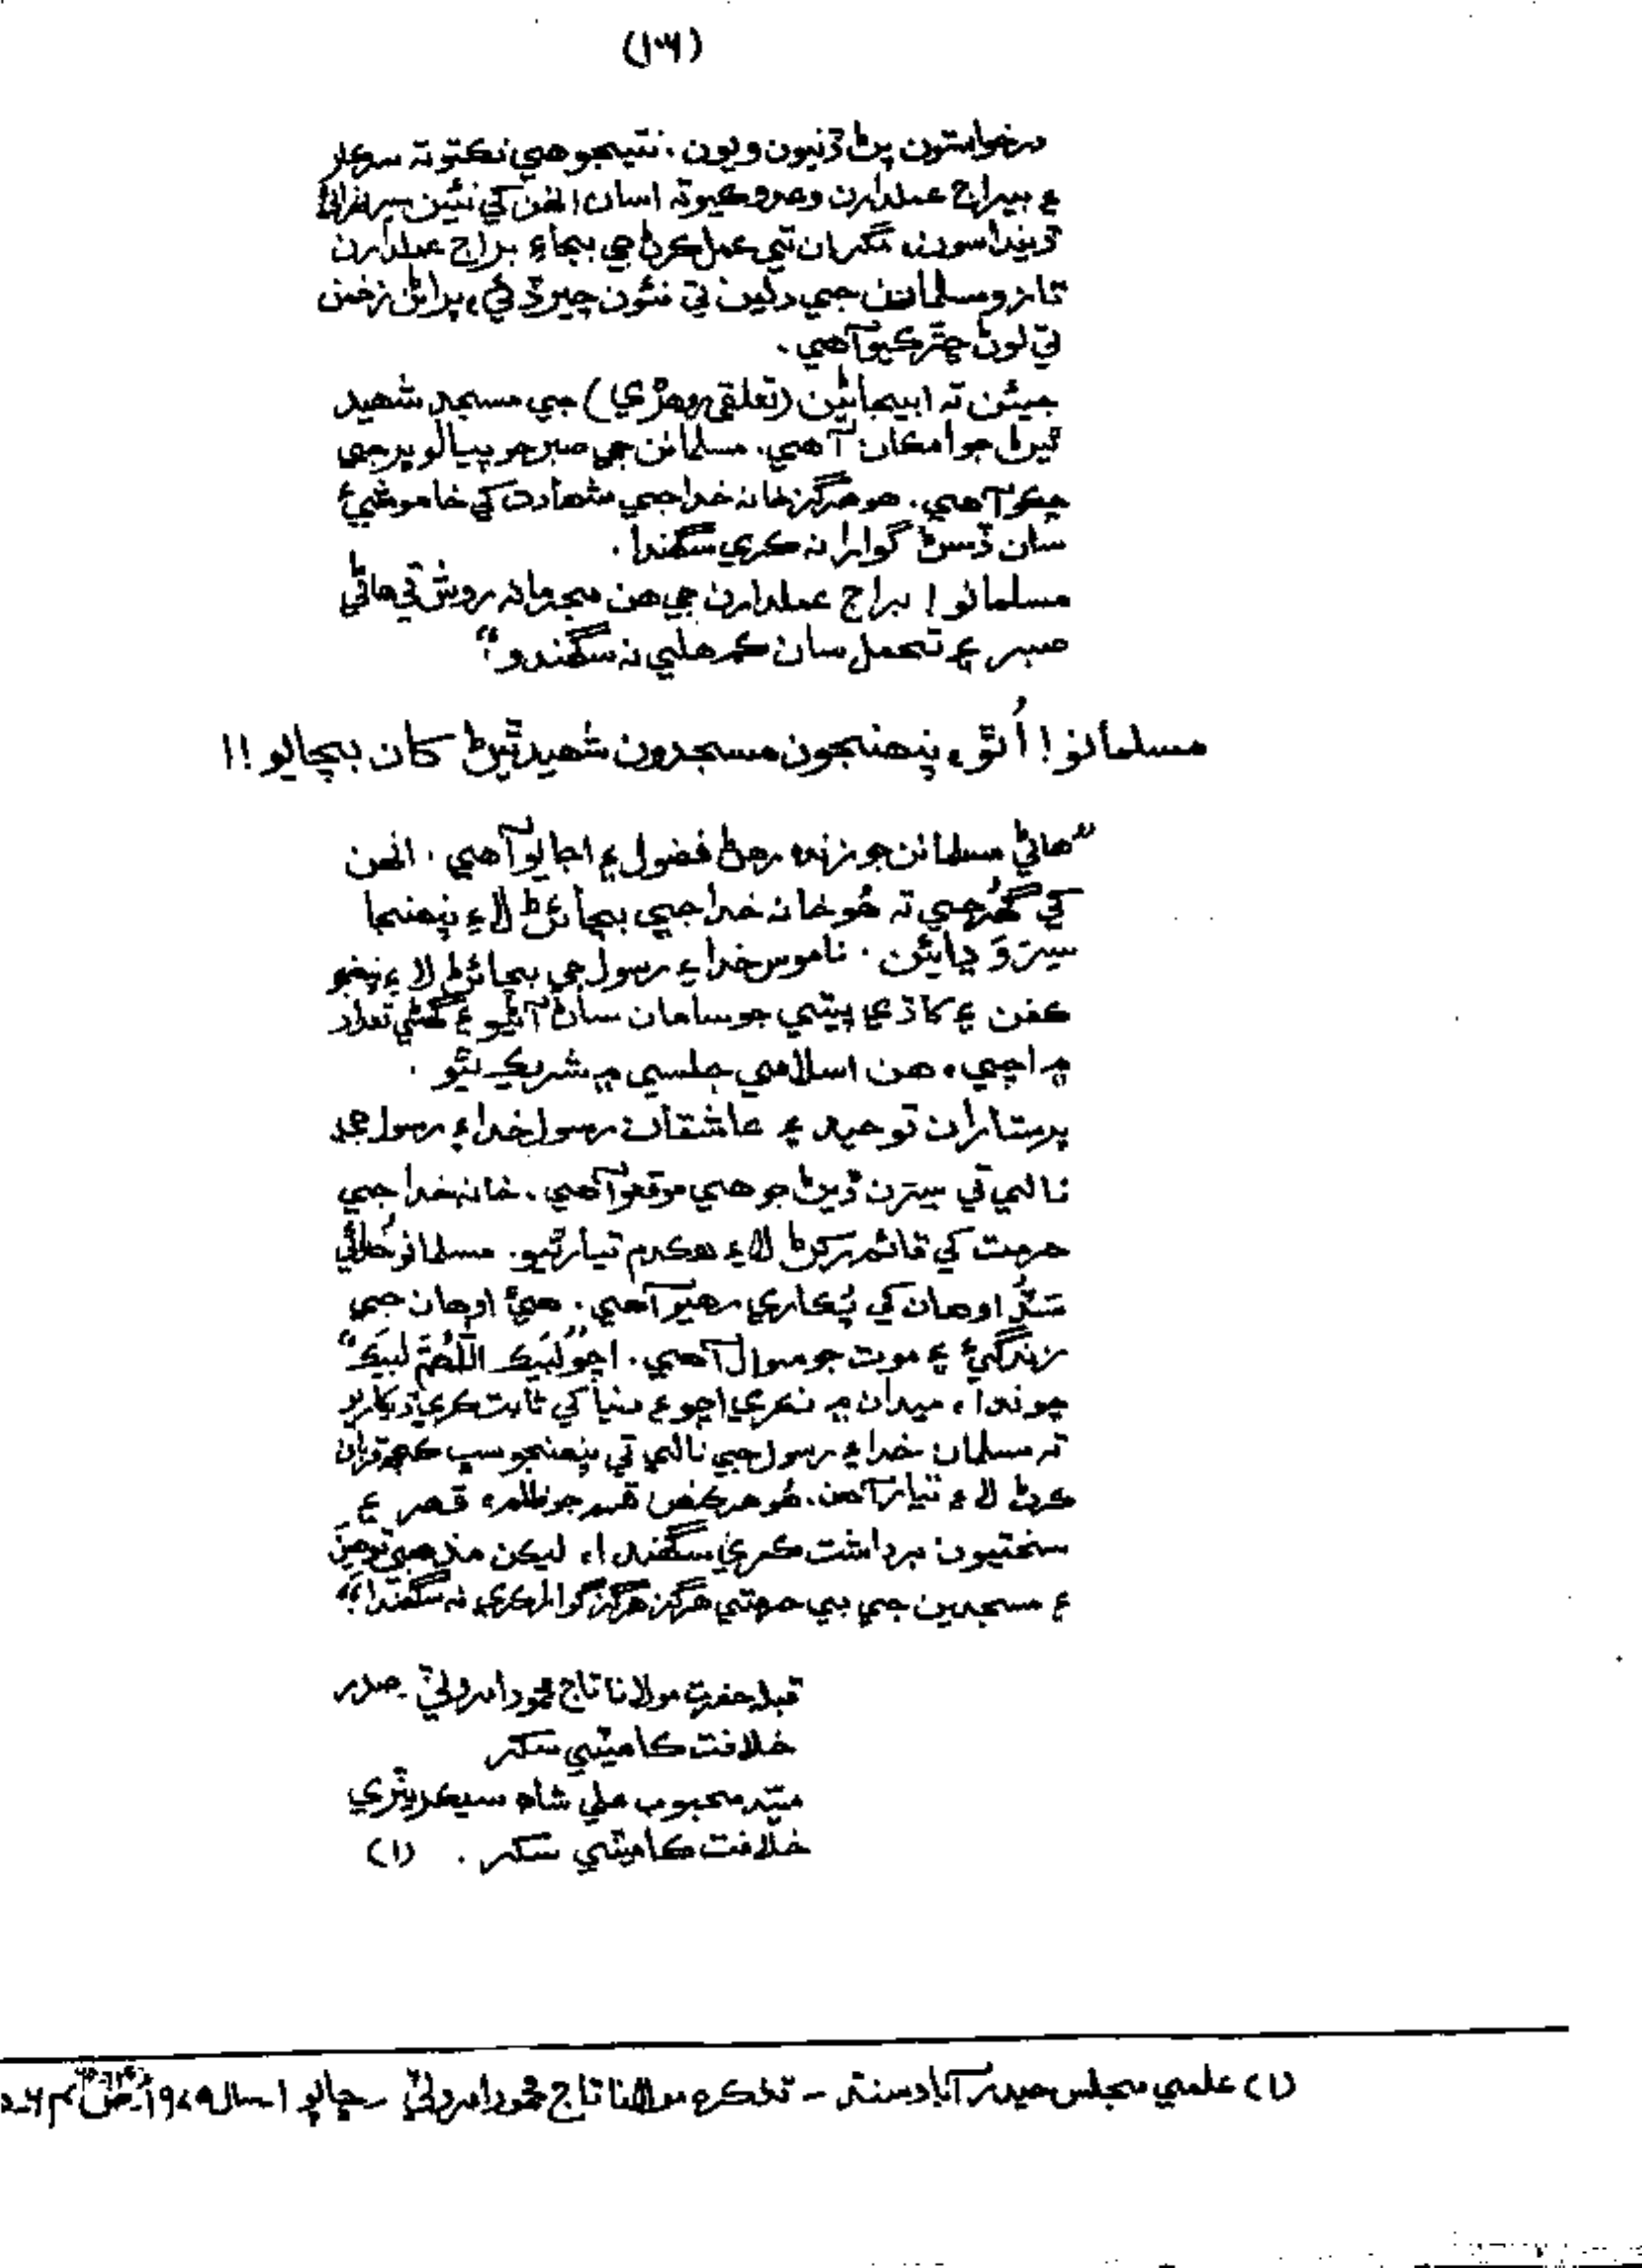 (۱۰۶)
درخواستون پڻ ڏنيون ويون. نتيجو هي نڪتو ته سرڪار
۽ بيراج عملدارن وعدو ڪيو ته اسان انهن کي نئين سر
ڏينداسون، مگر ان تي عمل ڪرڻ جي بجاءِ براج عملدارن
تازو مسلمانن جي دلين تي نئون چير ڏئي، پراڻن زخمن
تي لوڻ ڇٽڪيو آهي.
جيئن ته ابيجاڻين (تعلقي روهڙي) جي مسجد شهيد
ٿيڻ جو امڪان آهي. مسلمانن جي صبر جو پيالو ڀرجي
چڪو آهي. هو هرگز خانه خدا جي شهادت کي خاموشيءَ
سان ڏسڻ گوارا نه ڪري سگهندا.
مسلمانو! براج عملدارن جي هن مجرمانه روش تي هاڻي
صبر ۽ تحمل سان ڪم هلي نه سگهندو“
مسلمانو! اُٿو، پنهنجون مسجدون شهيد ٿيڻ کان بچايو!!
”هاڻي مسلمانن جو زنده رهڻ فضول ۽ اجايو آهي. انهن
کي گهُرجي ته هُو خانه خدا جي بچائڻ لاءِ پنهنجا
سِر وَڍائين. ناموس خدا ۽ رسول جي بچائڻ لاءِ پنهنجو
ڪفن ۽ کاڌي پيتي جو سامان ساڻ آڻيو ۽ گهڻي تعداد
۾ اچي، هن اسلامي جلسي ۾ شريڪ ٿيو.
پرستاران توحيد ۽ عاشقان رسول خدا ۽ رسول جي
نالي تي سِرن ڏيڻ جو هي موقعو آهي. خانه خدا جي
حرمت کي قائم رکڻ لاءِ هڪدم تيار ٿيو. مسلمانو خدائي
سَڏُ اوهان کي پُڪاري رهيو آهي. هيءُ اوهان جي
زندگيءَ ۽ موت جو سوال آهي. اچو ”لَبَيڪ اللّٰهُمَّ لَبيَڪ“
چوندا، ميدان ۾ نڪري اچو ۽ دنيا کي ثابت ڪري ڏيکاريو
ته مسلمان خدا ۽ رسول جي نالي تي پنهنجو سڀ ڪجھ قربان
ڪرڻ لاءِ تيار آهن. هُو هر ڪنهن قسم جو ظلم، قهر ۽
سختيون برداشت ڪري سگهندا، ليڪن مذهبي توهين
۽ مسجدين جي بي حرمتي هرگز هرگز گوارا ڪري نه سگهندا“
قبله حضرت مولانا تاج محمود امروٽي صدر
خلافت ڪاميٽي سکر
سيّد محبوب علي شاه سيڪريٽري
خلافت ڪاميٽي سکر. (۱)
(۱) علمي مجلس حيدرآباد سنڌ – تذڪره مولانا تاج محمود امروٽي – ڇاپو ۱ سال